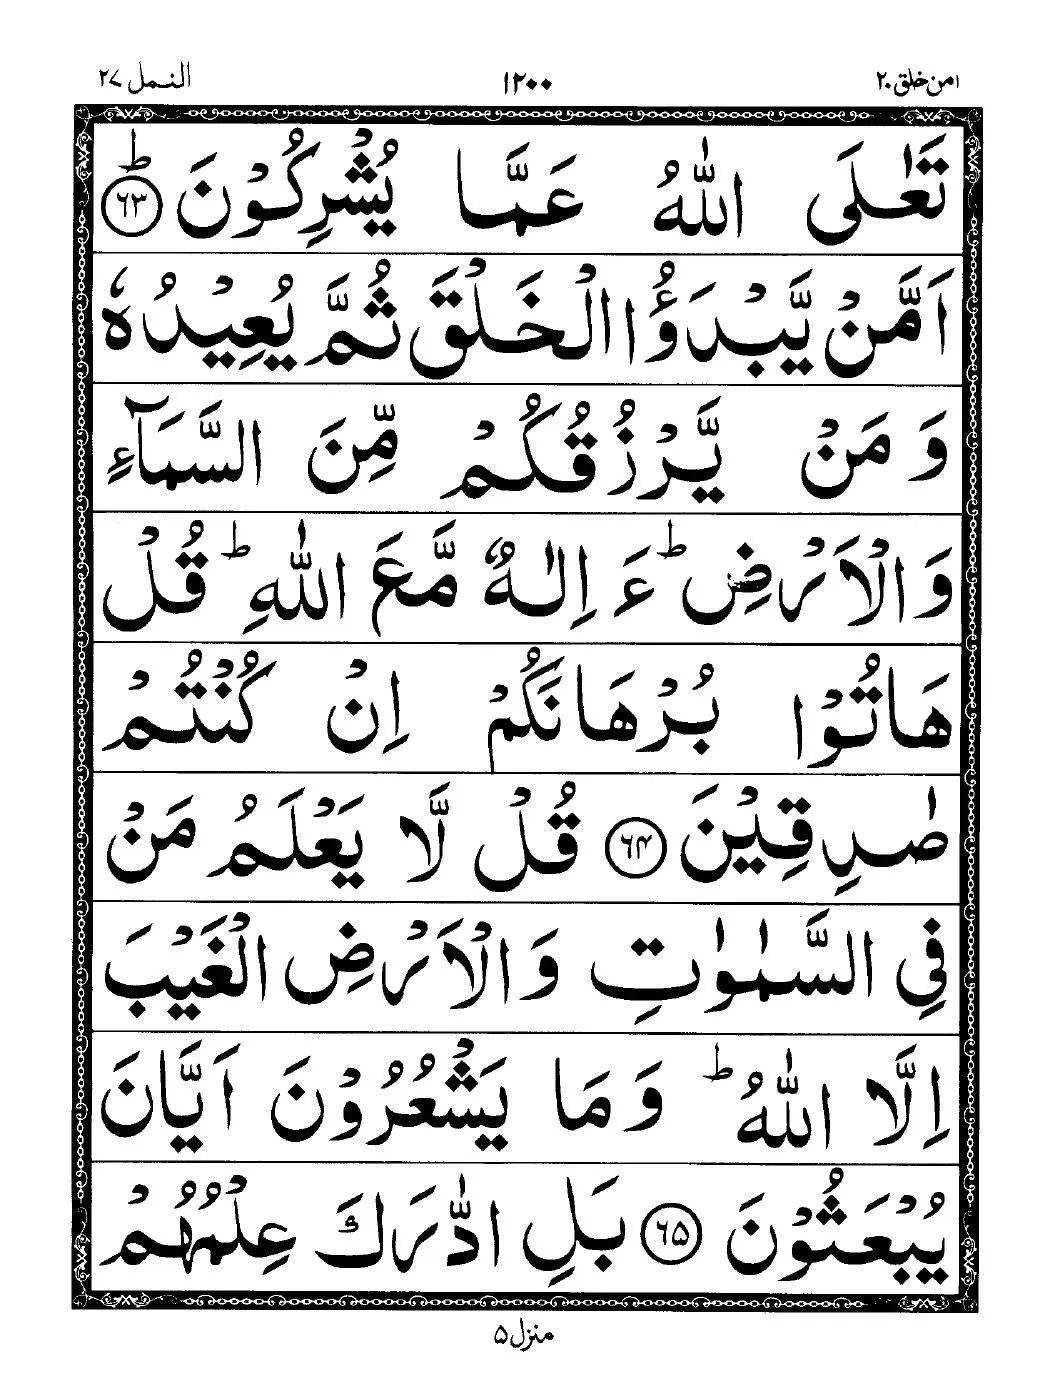 امن خلق ٢٠ ١٢٠٠ النمل ٢٧
تَعٰلَى اللّٰهُ عَمَّا يُشْرِكُوْنَ ؕ ﴿٦٣﴾
اَمَّنْ يَّبْدَؤُا الْخَلْقَ ثُمَّ يُعِيْدُهٗ
وَمَنْ يَّرْزُقُكُمْ مِّنَ السَّمَآءِ
وَالْاَرْضِ ؕ ءَاِلٰهٌ مَّعَ اللّٰهِ ؕ قُلْ
هَاتُوْا بُرْهَانَكُمْ اِنْ كُنْتُمْ
صٰدِقِيْنَ ﴿٦٤﴾ قُلْ لَّا يَعْلَمُ مَنْ
فِي السَّمٰوٰتِ وَالْاَرْضِ الْغَيْبَ
اِلَّا اللّٰهُ ؕ وَمَا يَشْعُرُوْنَ اَيَّانَ
يُبْعَثُوْنَ ﴿٦٥﴾ بَلِ ادّٰرَكَ عِلْمُهُمْ
منزل ٥